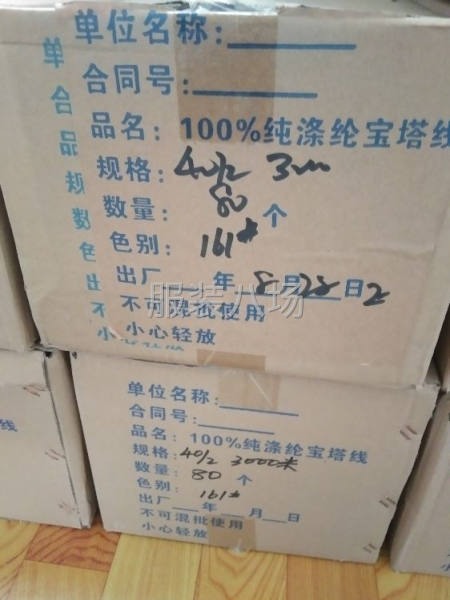 单位名称:
合同号:
品名: 100%纯涤纶宝塔线
规格: 40/2 3000
数量: 80 个
色别: 161#
出厂 年 8月28日2
不可混批使用
小心轻放
服装八场
单位名称:
合同号:
品名: 100%纯涤纶宝塔线
规格: 40/2 3000米
数量: 80 个
色别: 161#
出厂 年 月 日
不可混批使用
小心轻放
线